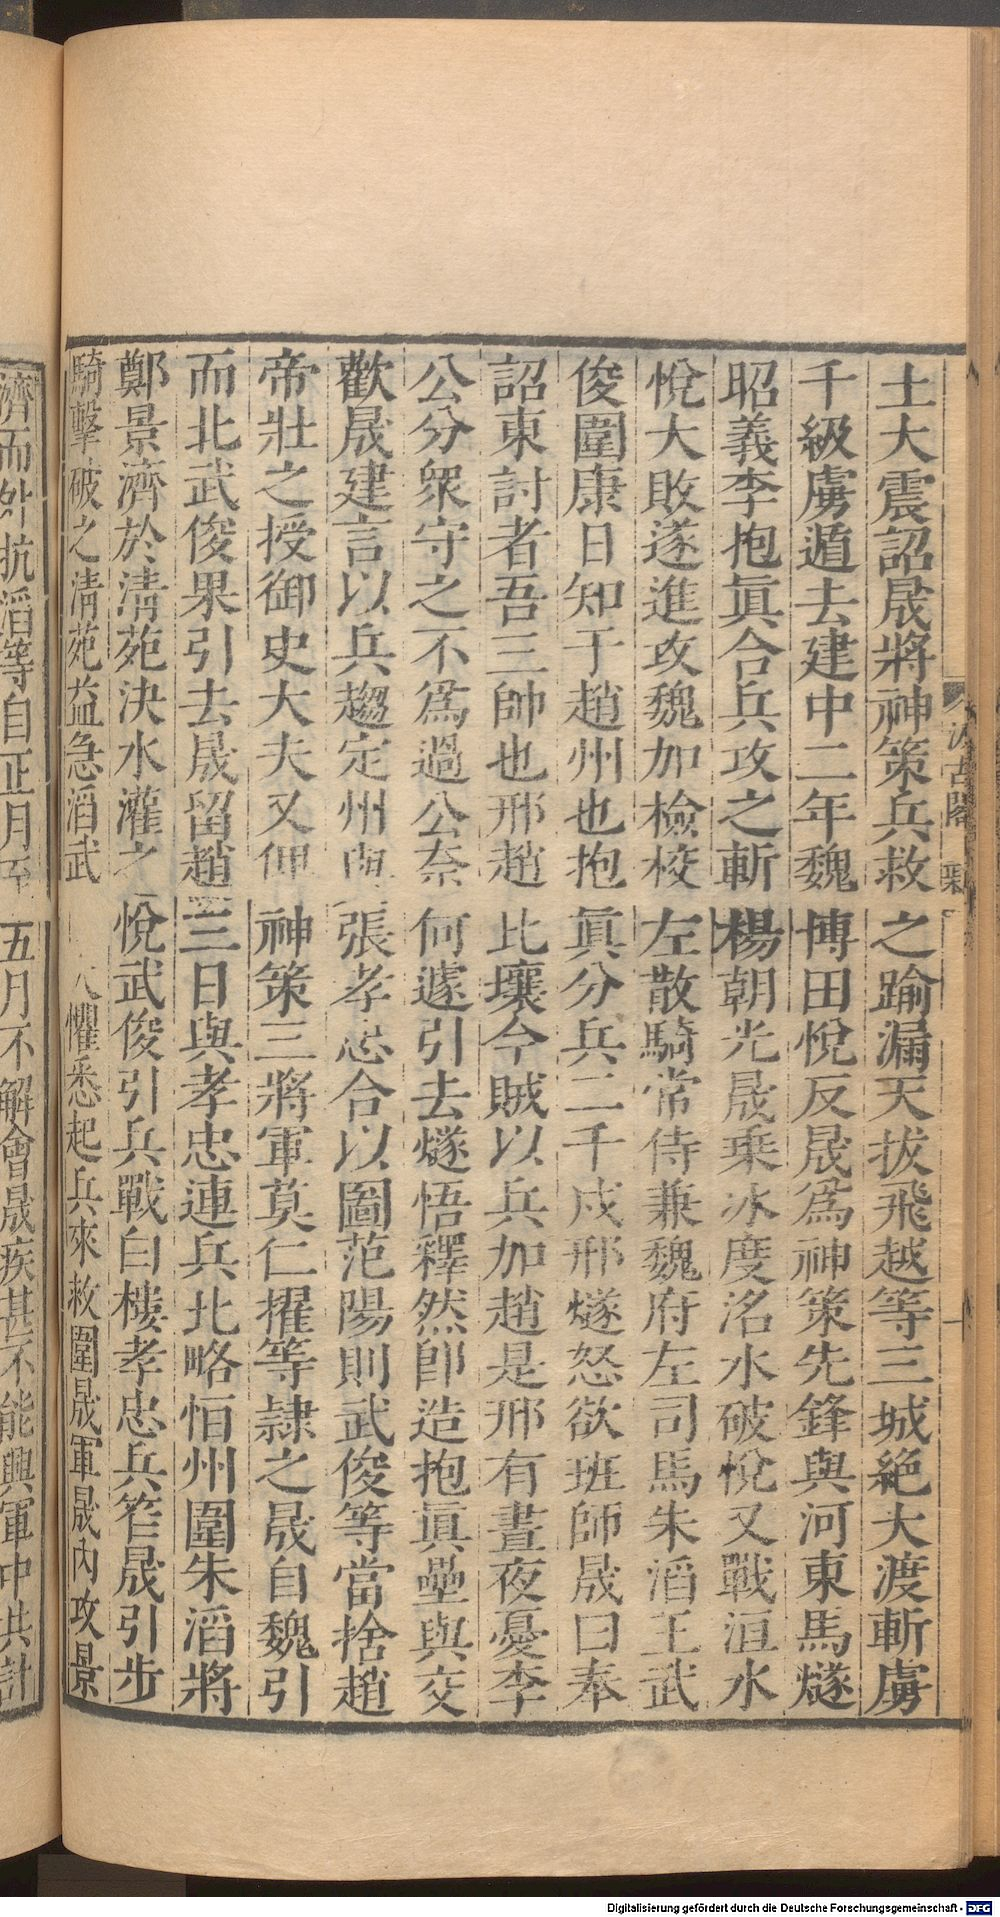 土大震詔晟將神策兵救之踰漏天拔飛越等三城絕大渡斬虜
千級虜遁去建中二年魏博田悅反晟爲神策先鋒與河東馬燧
昭義李抱眞合兵攻之斬楊朝光晟乘冰度洺水破悅又戰洹水
悅大敗遂進攻魏加檢校左散騎常侍兼魏府左司馬朱滔王武
俊圍康日知于趙州也抱眞分兵二千戍邢燧怒欲班師晟曰奉
詔東討者吾三帥也邢趙比壤今賊以兵加趙是邢有晝夜憂李
公分衆守之不爲過公奈何遽引去燧悟釋然卽造抱眞壘與交
歡晟建言以兵趨定州與張孝忠合以圖范陽則武俊等當捨趙
帝壯之授御史大夫又俾神策三將軍莫仁擢等隷之晟自魏引
而北武俊果引去晟留趙三日與孝忠連兵北略恒州圍朱滔將
鄭景濟於淸苑決水灌之悅武俊引兵戰白樓孝忠兵笮晟引步
騎擊破之淸苑益急滔武 人懼悉起兵來救圍晟軍晟內攻景
濟而外抗滔等自正月至五月不解會晟疾甚不能興軍中共計
汲古閣
Digitalisierung gefördert durch die Deutsche Forschungsgemeinschaft - DFG